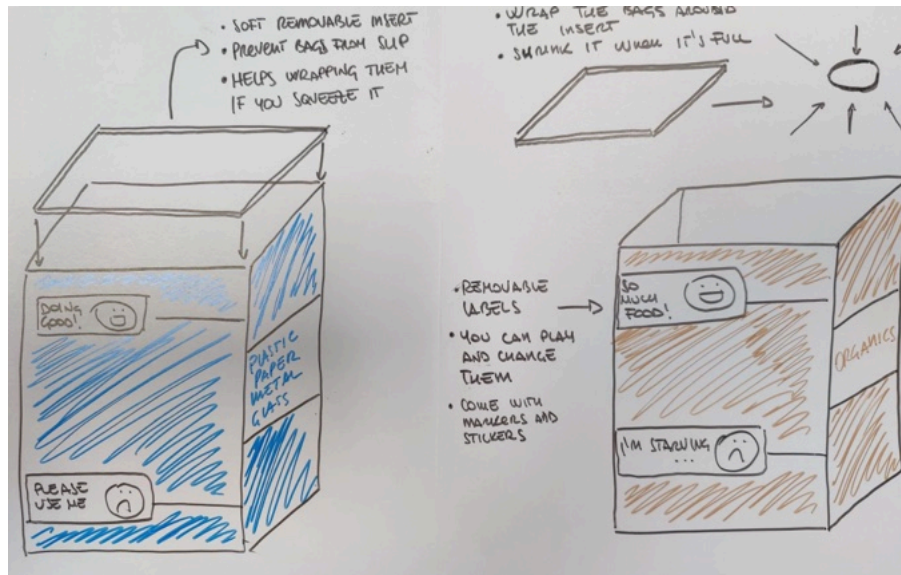 • SOFT REMOVABLE INSERT
• PREVENT BAGS FROM SLIP
• HELPS WRAPPING THEM
IF YOU SQUEEZE IT
• WRAP THE BAGS AROUND
THE INSERT
• SHRINK IT WHEN IT'S FULL
DOING
GOOD!
PLASTIC
PAPER
METAL
GLASS
PLEASE
USE ME
• REMOVABLE
LABELS
• YOU CAN PLAY
AND CHANGE
THEM
• COME WITH
MARKERS AND
STICKERS
SO
MUCH
FOOD!
ORGANICS
I'M STARVING
...